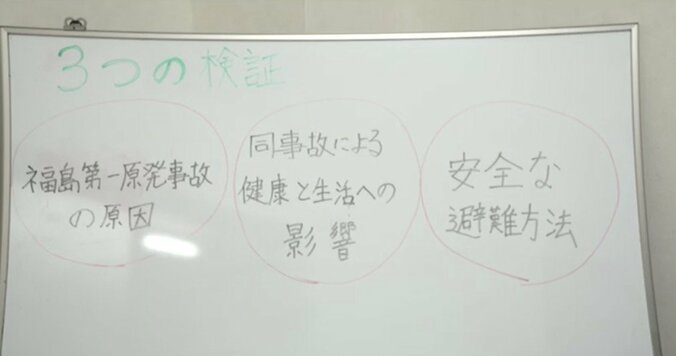 3つの検証
福島第一原発事故
の原因
同事故による
健康と生活への
影響
安全な
避難方法